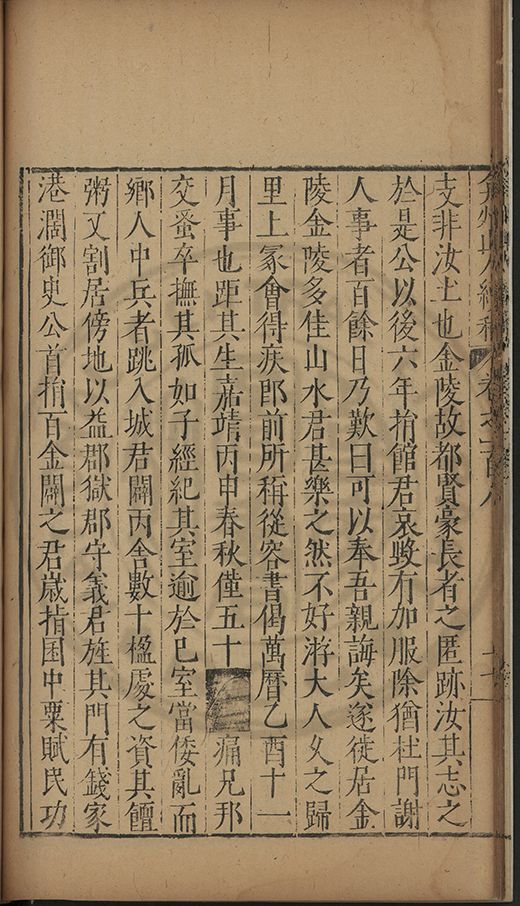 弇州山人續稿 卷之一百八
支非汝土也金陵故都賢豪長者之匿跡汝其志之
於是公以後六年捐館君哀毀有加服除猶杜門謝
人事者百餘日乃歎曰可以奉吾親誨矣遂徙居金
陵金陵多佳山水君甚樂之然不好游大人久之歸
里上冢會得疾即前所稱從容書偈萬曆乙酉十一
月事也距其生嘉靖丙申春秋僅五十 痛兄邦
交蚤卒撫其孤如子經紀其室逾於己室當倭亂而
鄉人中兵者跳入城君闢丙舍數十楹處之資其饘
粥又割居傍地以益郡獄郡守義君旌其門有錢家
港濶御史公首捐百金闢之君歲指囷中粟賦民功